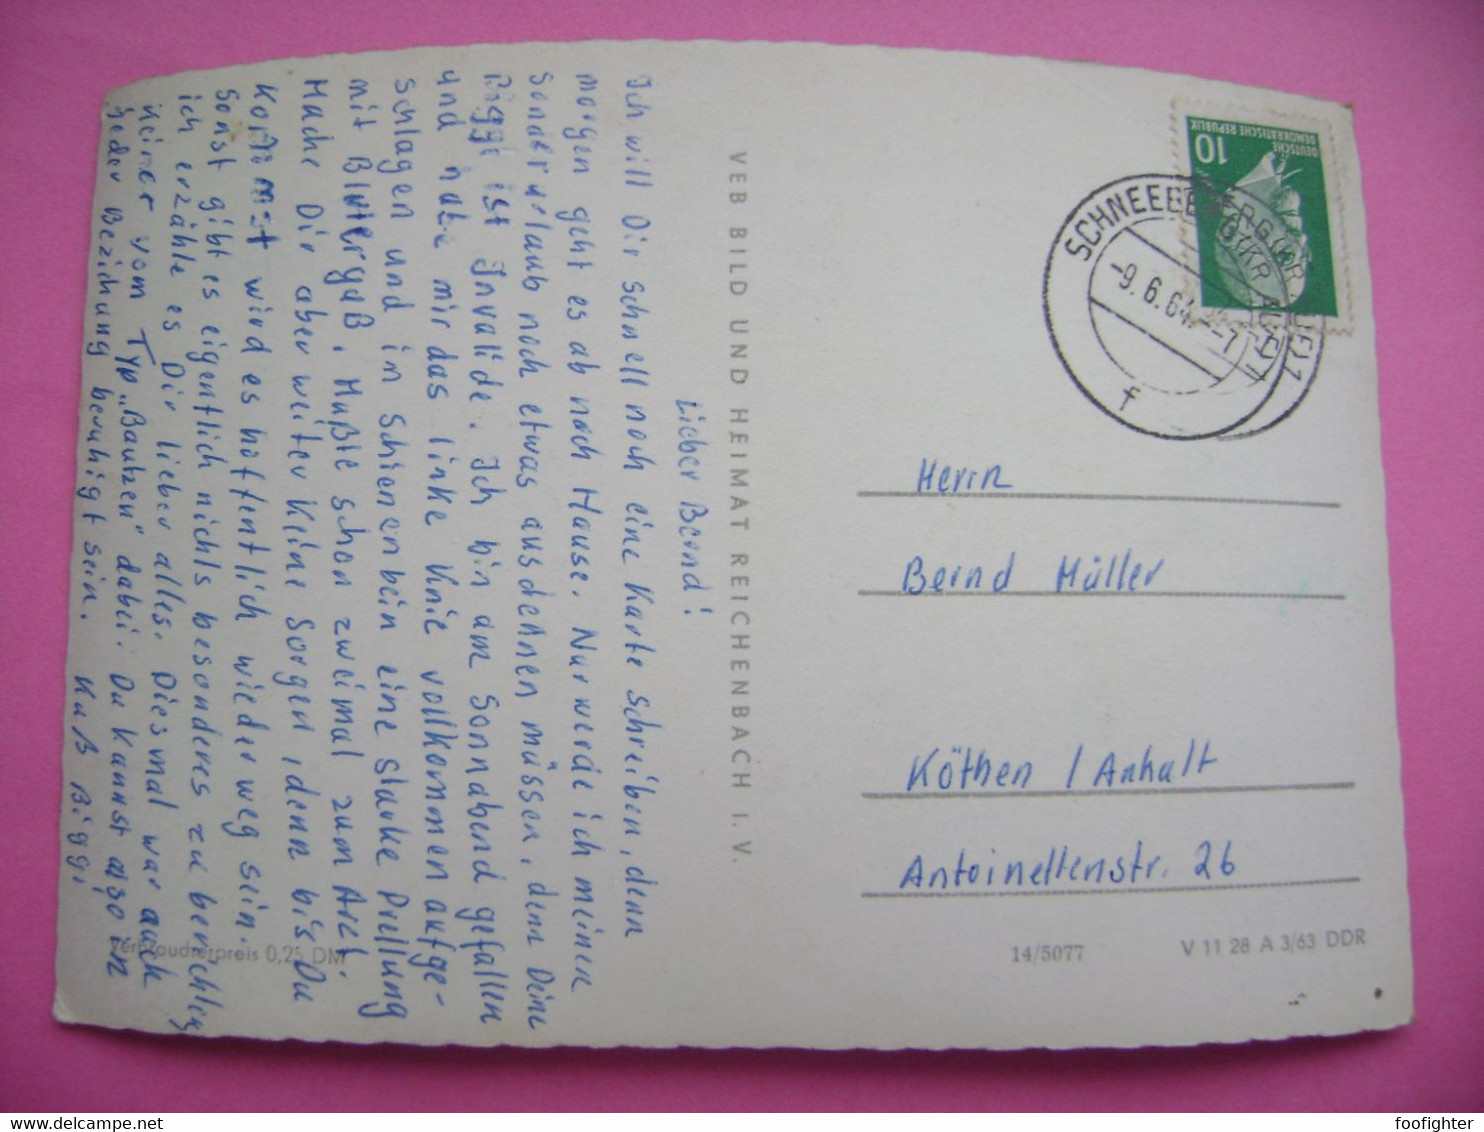 Lieber Bernd!
Ich will Dir schnell noch eine Karte schreiben, denn
morgen geht es ab nach Hause. Nur werde ich meinen
Sonderurlaub noch etwas ausdehnen müssen, denn Deine
Biggi ist Invalide. Ich bin am Sonnabend gefallen
und habe mir das linke Knie vollkommen aufge-
schlagen und im Schienenbein eine starke Prellung
mit Bluterguß. Mußte schon zweimal zum Arzt.
Mache Dir aber weiter keine Sorgen, denn bis Du
kommst wird es hoffentlich wieder weg sein.
Sonst gibt es eigentlich nichts besonderes zu berichten
ich erzähle es Dir lieber alles. Diesmal war auch
keiner vom Typ „Bautzen" dabei. Du kannst also in
jeder Beziehung beruhigt sein. Kuß Biggi
Verbraucherpreis 0,25 DM
VEB BILD UND HEIMAT REICHENBACH I. V.
DEUTSCHE
DEMOKRATISCHE REPUBLIK
10
SCHNEEBERG (KR AUE) 1
-9.6.64.-7
f
Herrn
Bernd Müller
Köthen / Anhalt
Antoinettenstr. 26
14/5077
V 11 28 A 3/63 DDR
foofighter